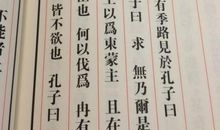 有季路見於孔子曰
子曰 求 無乃爾是
王以爲東蒙主 且在
臣也 何以伐爲 冉有
皆不欲也 孔子曰
不能者